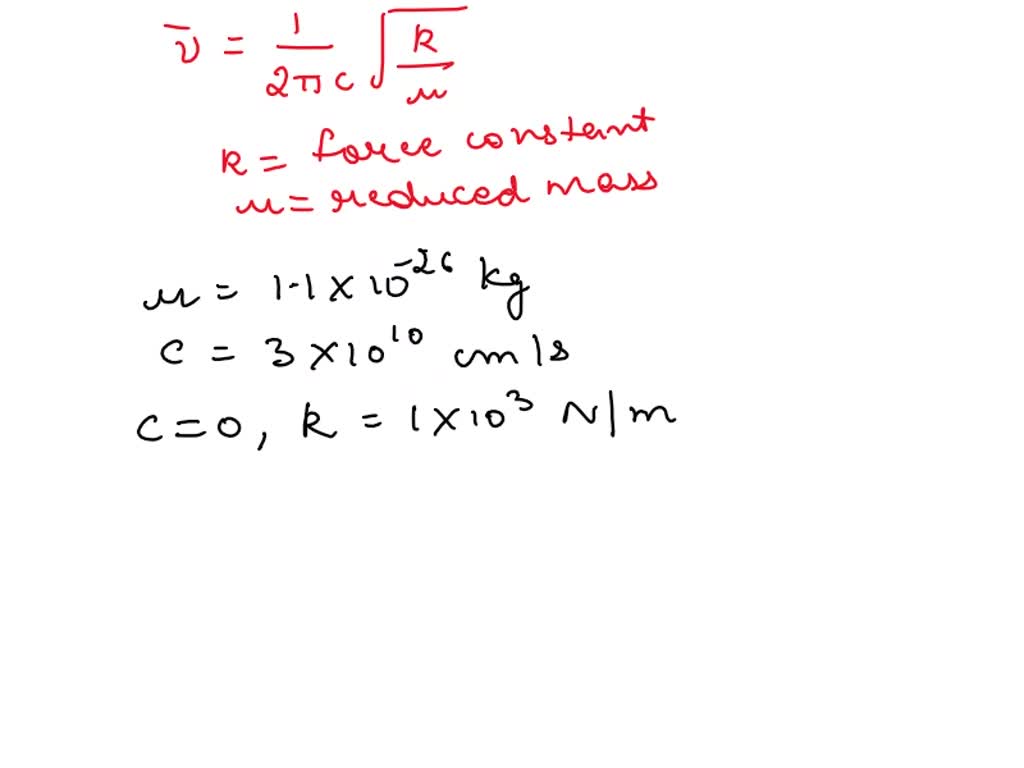 ν̄ = 1/2πc √k/μ
k = force constant
μ = reduced mass
μ = 1.1 × 10⁻²⁶ kg
c = 3 × 10¹⁰ cm/s
C=O, k = 1 × 10³ N/m